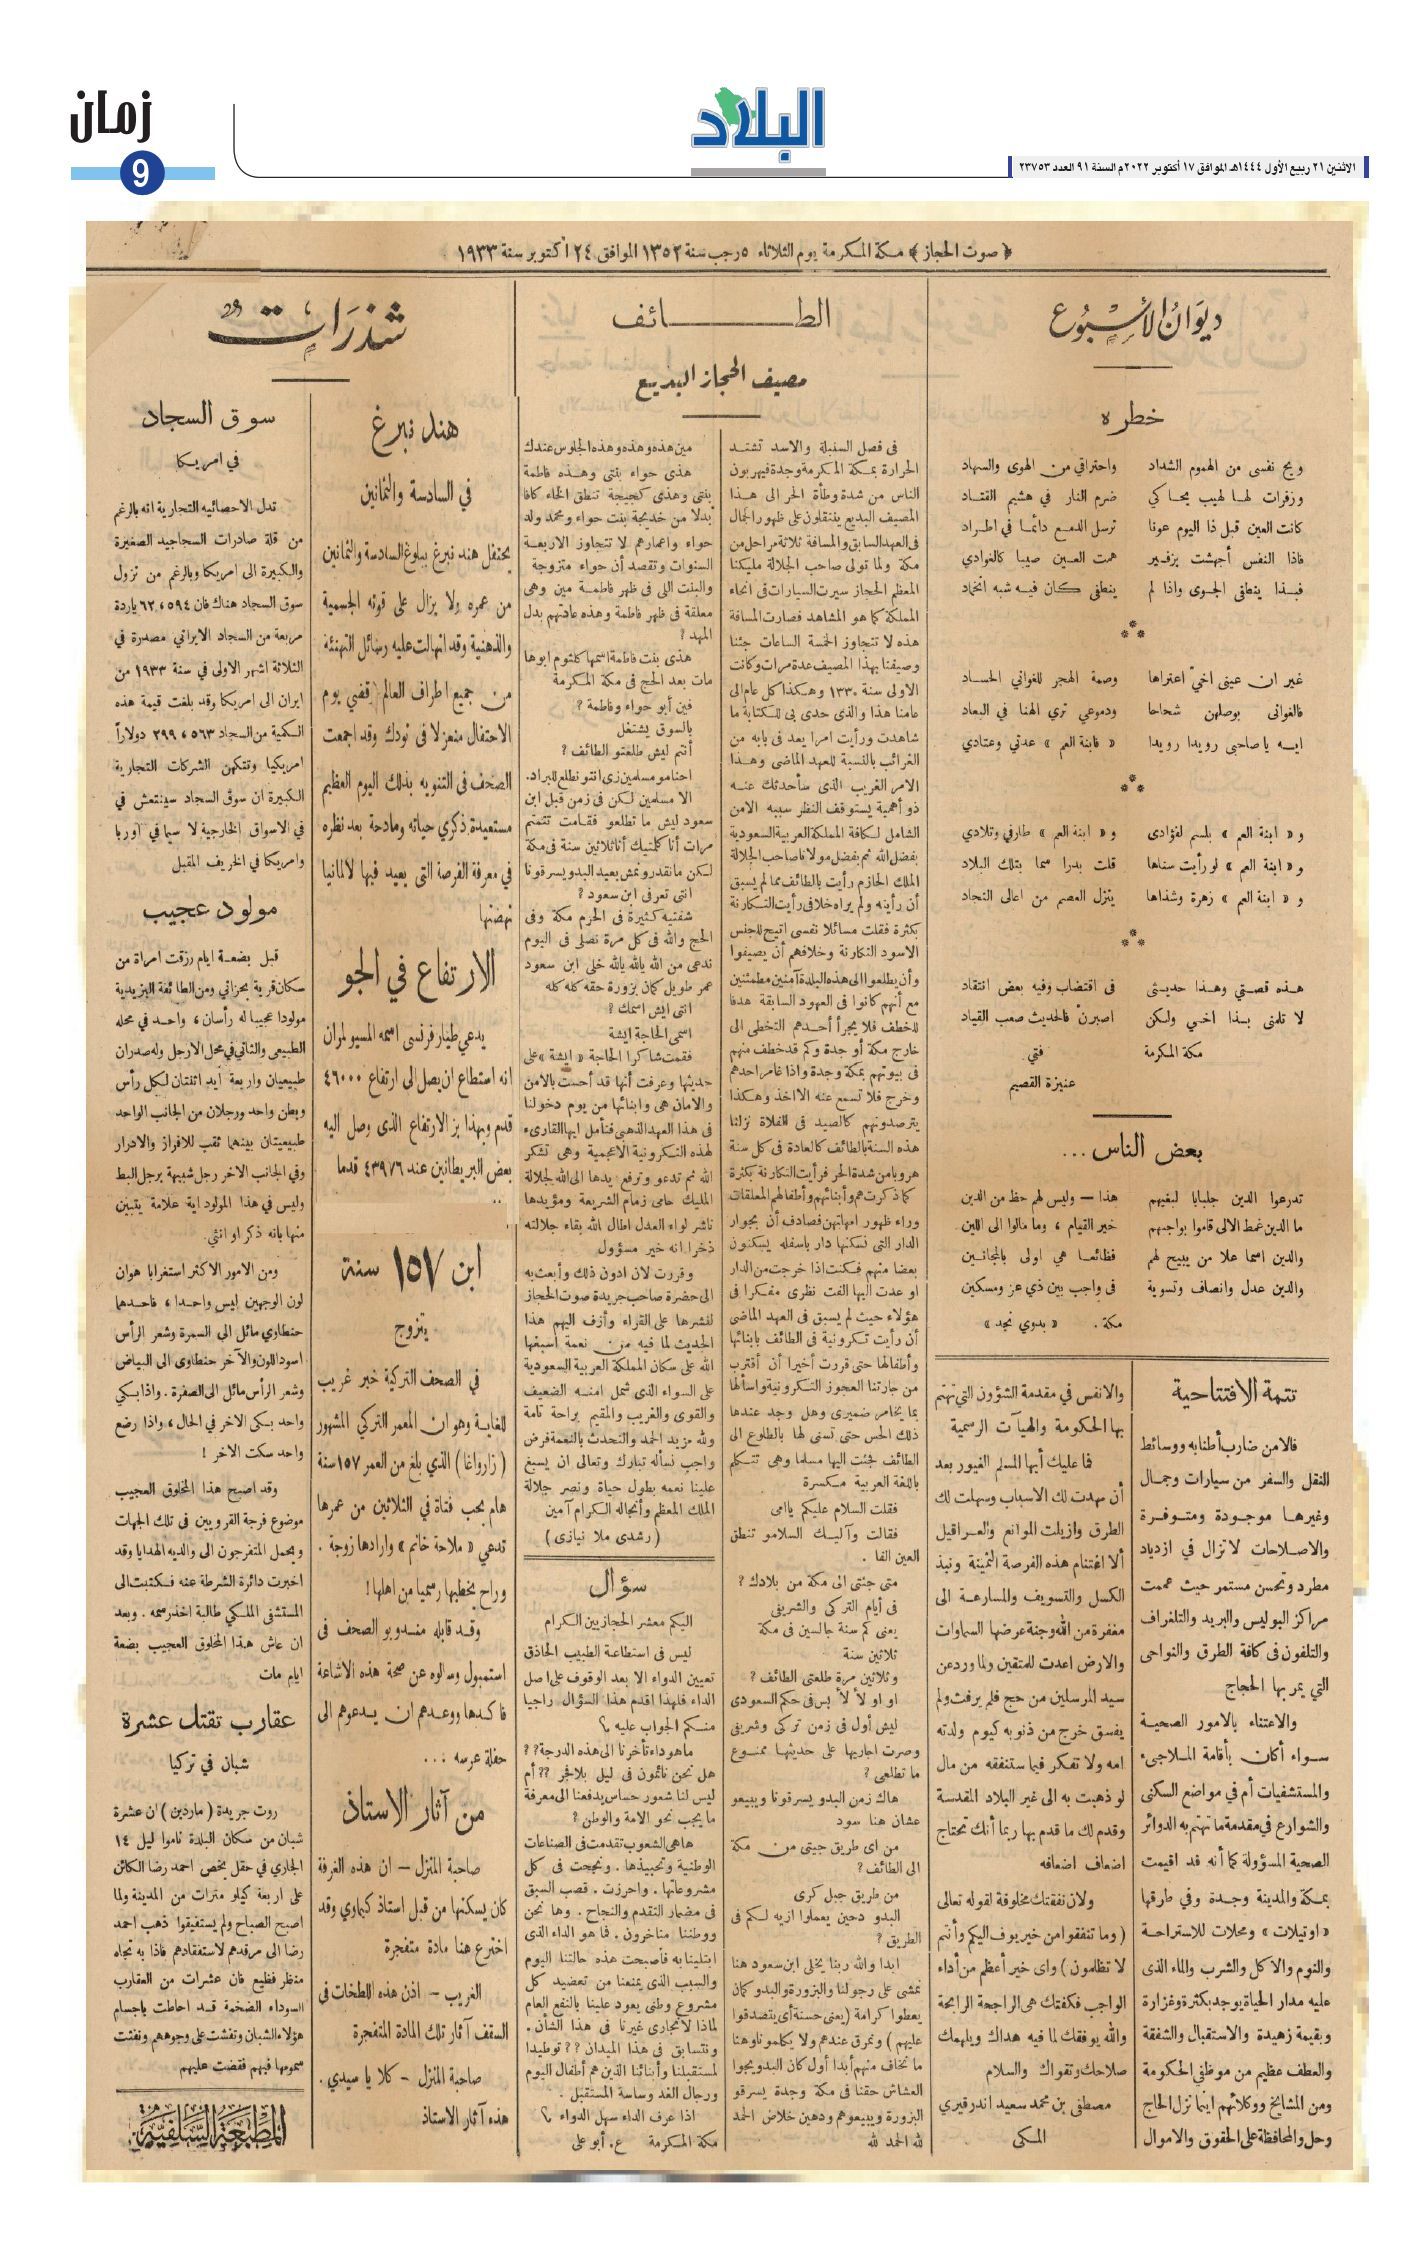 زمان
9
البلاد
الاثنين ٢١ ربيع الأول ١٤٤٤هـ الموافق ١٧ أكتوبر ٢٠٢٢م السنة ٩١ العدد ٢٣٧٥٣
﴿ صوت الحجاز ﴾ مكة المكرمة يوم الثلاثاء ٥ رجب سنة ١٣٥٢ الموافق ٢٤ اكتوبر سنة ١٩٣٣
ديوان الأسبوع
خطره
ويح نفسى من الهموم الشداد واحتراقي من الهوى والسهاد
وزفرات لها لهيب يحاكي ضرم النار في هشيم القتاد
كانت العين قبل ذا اليوم عونا ترسل الدمع دائما في اطراد
فاذا النفس أجهشت بزفير همت العين صيبا كالغوادي
فبذا ينطفى الجوى واذا لم ينطفي كان فيه شبه اتخاد
غير ان عينى اخيّ اعتراها وصمة الهجر للغواني الحساد
فالغوانى بوصلهن شحاحا ودموعي تري الهنا في البعاد
ايه يا صاحبي رويدا رويدا « فابنة العم » عدتي وعتادي
و « ابنة العم » بلسم لفؤادى و « ابنة العم » طارفي وتلادي
و « ابنة العم » لو رأيت سناها قلت بدرا سما بتلك البلاد
و « ابنة العم » زهرة وشذاها ينزل العصم من اعالى النجاد
هذه قصتي وهذا حديثى فى اقتضاب وفيه بعض انتقاد
لا تلمنى بذا اخي ولكن اصبرنْ فالحديث صعب القياد
مكة المكرمة فتي
عنيزة القصيم
بعض الناس ...
تدرعوا الدين جلبابا لبغيهم هذا — وليس لهم حظ من الدين
ما الدين غمط الالى قاموا بواجبهم خير القيام ، وما مالوا الى اللين
والدين اسما علا من يبيح لهم فظائعا هي اولى بالمجانين
والدين عدل وانصاف وتسوية فى واجب بين ذي عز ومسكين
مكة . « بدوي نجد »
تتمة الافتتاحية
فالامن ضارب أطنابه ووسائط
النقل والسفر من سيارات وجمال
وغيرها موجودة ومتوفرة
والاصلاحات لا تزال في ازدياد
مطرد وتحسن مستمر حيث عممت
مراكز البوليس والبريد والتلغراف
والتلفون فى كافة الطرق والنواحى
التي يمر بها الحجاج
والاعتناء بالامور الصحية
سواء أكان بأقامة الملاجىء
والمستشفيات أم في مواضع السكنى
والشوارع في مقدمة ما تهتم به الدوائر
الصحية المسؤولة كما أنه قد اقيمت
بمكة والمدينة وجدة وفي طرقها
« اوتيلات » ومحلات للاستراحة
والنوم والاكل والشرب والماء الذى
عليه مدار الحياة يوجد بكثرة وغزارة
وبقيمة زهيدة والاستقبال والشفقة
والعطف عظيم من موظفي الحكومة
ومن المشايخ ووكلائهم اينما نزل الحاج
وحل والمحافظة على الحقوق والاموال
والانفس في مقدمة الشؤون التي تهتم
بها الحكومة والهيآت الرسمية
فما عليك أيها المسلم الغيور بعد
أن مهدت لك الاسباب وسهلت لك
الطرق وازيلت الموانع والعراقيل
ألا اغتنام هذه الفرصة الثمينة ونبذ
الكسل والتسويف والمسارعة الى
مغفرة من الله وجنة عرضها السماوات
والارض اعدت للمتقين ولما ورد عن
سيد المرسلين من حج فلم يرفث ولم
يفسق خرج من ذنوبه كيوم ولدته
امه ولا تفكر فيما ستنفقه من مال
لو ذهبت به الى غير البلاد المقدسة
وقدم لك ما قدم بها ربما أنك تحتاج
اضعاف اضعافه
ولان نفقتك مخلوفة لقوله تعالى
( وما تنفقوا من خير يوف اليكم وأنتم
لا تظلمون ) واى خير أعظم من أداء
الواجب فكفتك هى الراجحة الرابحة
والله يوفقك لما فيه هداك ويلهمك
صلاحك وتقواك والسلام
مصطفى بن محمد سعيد اندرقيري
المكى
الطائف
مصيف الحجاز البديع
فى فصل السنبلة والاسد تشتد
الحرارة بمكة المكرمة وجدة فيهربون
الناس من شدة وطأة الحر الى هذا
المصيف البديع يتنقلون على ظهور الجمال
فى العهد السابق والمسافة ثلاثة مراحل من
مكة ولما تولى صاحب الجلالة مليكنا
المعظم الحجاز سيرت السيارات فى انحاء
المملكة كما هو المشاهد فصارت المسافة
هذه لا تتجاوز الخمسة الساعات جئنا
وصيفنا بهذا المصيف عدة مرات وكانت
الاولى سنة ١٣٣٠ وهكذا كل عام الى
عامنا هذا والذى حدى بى للكتابة ما
شاهدت ورأيت امرا يعد فى بابه من
الغرائب بالنسبة للعهد الماضى وهذا
الامر الغريب الذى سأحدثك عنه
ذو أهمية يستوقف النظر سببه الامن
الشامل لكافة المملكة العربية السعودية
بفضل الله ثم بفضل مولانا صاحب الجلالة
الملك الحازم رأيت بالطائف مما لم يسبق
أن رأيته ولم يراه خلافى رأيت التكارنة
بكثرة فقلت مسائلا نفسى اتيح للجنس
الاسود التكارنة وخلافهم أن يصيفوا
وأن يطلعوا الى هذه البلدة آمنين مطمئنين
مع أنهم كانوا فى العهود السابقة هدفا
للخطف فلا يجرأ أحدهم التخطى الى
خارج مكة أو جدة وكم قد خطف منهم
فى بيوتهم بمكة وجدة واذا غامر احدهم
وخرج فلا تسمع عنه الا اخذ وهكذا
يترصدونهم كالصيد فى الفلاة نزلنا
هذه السنة بالطائف كالعادة فى كل سنة
هروبا من شدة الحر فرأيت التكارنة بكثرة
كما ذكرت هم وأبنائهم وأطفالهم المعلقات
وراء ظهور امهاتهن فصادف أن بجوار
الدار التى نسكنها دار باسفله يسكنون
بعضا منهم فكنت اذا خرجت من الدار
او عدت اليها الفت نظرى مفكرا فى
هؤلاء حيث لم يسبق فى العهد الماضى
أن رأيت تكرونية فى الطائف بابنائها
وأطفالها حتى قررت أخيرا أن أقترب
من جارتنا العجوز التكرونية واسألها
بما يخامر ضميرى وهل وجد عندها
ذلك الحس حتى تسنى لها بالطلوع الى
الطائف فجئت اليها مسلما وهى تتكلم
باللغة العربية مكسرة
فقلت السلام عليكم يا امى
فقالت وآليك السلامو تنطق
العين الفا .
متى جئتى الى مكة من بلادك ؟
فى أيام التركى والشريفى
يعنى كم سنة جالسين فى مكة
ثلاثين سنة
وثلاثين مرة طلعتى الطائف ؟
او او لأ لأ بس فى حكم السعودى
ليش أول فى زمن تركى وشريفى
وصرت اجاريها على حديثها ممنوع
ما تطلعى ؟
هاك زمن البدو يسرقونا ويبيعو
عشان هنا سود
من اى طريق جيتى من مكة
الى الطائف ؟
من طريق جبل كرى
البدو دحين يعملوا ازيه لكم فى
الطريق ؟
ابدا والله ربنا يخلى ابن سعود هنا
نمشى على رجولنا والبزورة والبدو كمان
يعطوا كرامة ( يعنى حسنة أى يتصدقوا
عليهم ) ونمرق عندهم ولا يكلمونا وهنا
ما نخاف منهم أبدا أول كان البدو يجوا
العشاش حقنا فى مكة وجدة يسرقو
البزورة ويبيعوهم ودحين خلاص الحمد
لله الحمد لله
مين هذه وهذه وهذه الجلوس عندك
هذى حواء بنتى وهذه فاطمة
بنتى وهذى كجيجة تنطق الخاء كافا
بدلا من خديجة ابنت حواء ومحمد ولد
حواء واعمارهم لا تتجاوز الاربعة
السنوات وتقصد أن حواء متزوجة
والبنت اللى فى ظهر فاطمة مين وهى
معلقة فى ظهر فاطمة وهذه عادتهم بدل
المهد ؟
هذى بنت فاطمة اسمها كلثوم ابوها
مات بعد الحج فى مكة المكرمة
فين أبو حواء وفاطمة ؟
بالسوق يشتغل
أنتم ليش طلعتو الطائف ؟
احنا مو مسلمين زى انتو نطلع للبراد .
الا مسلمين لكن فى زمن قبل ابن
سعود ليش ما تطلعو فقامت تتمتم
مرات أنا كلمتيك أنا ثلاثين سنة فى مكة
لكن ما نقدر ونمشى بعيد البدو يسرقونا
انتى تعرفى ابن سعود ؟
شفتيه كثيرة فى الحرم مكة وفى
الحج والله فى كل مرة نصلى فى اليوم
ندعى من الله يالله يالله خلى ابن سعود
عمر طويل كمان بزورة حقه كله كله
انتى ايش اسمك ؟
اسمى الحاجة ايشة
فقمت شاكرا الحاجة « ايشة » على
حديثها وعرفت أنها قد أحست بالامن
والامان هى وابنائها من يوم دخولنا
فى هذا العهد الذهبى فتأمل ايها القارىء
لهذه التكرونية الاعجمية وهى تشكر
الله ثم تدعو وترفع يدها الى الله لجلالة
المليك حامى زمام الشريعة ومؤيدها
ناشر لواء العدل اطال الله بقاء جلالته
ذخرا انه خير مسؤول
وقررت لان ادون ذلك وأبعث به
الى حضرة صاحب جريدة صوت الحجاز
لنشرها على القراء وأزف اليهم هذا
الحديث لما فيه من نعمة اسبغها
الله على سكان المملكة العربية السعودية
على السواء الذى شمل امنه الضعيف
والقوى والغريب والمقيم براحة تامة
ولله مزيد الحمد والتحدث بالنعمة فرض
واجب نسأله تبارك وتعالى ان يسبغ
علينا نعمه بطول حياة ونصر جلالة
الملك المعظم وأنجاله الكرام آمين
( رشدى ملا نيازى )
سؤال
اليكم معشر الحجازيين الكرام
ليس فى استطاعة الطبيب الحاذق
تعيين الدواء الا بعد الوقوف على اصل
الداء فلهذا اقدم هذا السؤال راجيا
منكم الجواب عليه ؟
ما هو داء تأخرنا الى هذه الدرجة ؟ ؟
هل نحن نائمون فى ليل بلا فجر ؟؟ أم
ليس لنا شعور حساس يدفعنا الى معرفة
ما يجب نحو الامة والوطن ؟
ها هى الشعوب تقدمت فى الصناعات
الوطنية وتحبيذها . ونجحت فى كل
مشروعاتها . واحرزت . قصب السبق
فى مضمار التقدم والنجاح . وها نحن
ووطننا متأخرون . فما هو الداء الذى
ابتلينا به فأصبحت هذه حالتنا اليوم
والسبب الذى يمنعنا من تعضيد كل
مشروع وطنى يعود علينا بالنفع العام
لماذا لا نجارى غيرنا فى هذا الشأن .
ونتسابق فى هذا الميدان ؟ ؟ توطيدا
لمستقبلنا وأبنائنا الذين هم أطفال اليوم
ورجال الغد وساسة المستقبل .
اذا عرف الداء سهل الدواء ؟
مكة المكرمة ع . أبو على
شذرات
هند نبرغ
في السادسة والثمانين
يحتفل هند نبرغ ببلوغ السادسة والثمانين
من عمره ولا يزال على قوته الجسمية
والذهنية وقد انهالت عليه رسائل التهنئة
من جميع اطراف العالم ( قضي يوم
الاحتفال منعزلا فى نودك وقد اجمعت
الصحف في التنويه بذلك اليوم العظيم
مستعيدة ذكري حياته ومادحة بعد نظره
في معرفة الفرصة التى يعيد فيها لالمانيا
نهضتها
الارتفاع في الجو
يدعي طيار فرنسى اسمه المسيو لمران
انه استطاع ان يصل الى ارتفاع ٤٦٠٠٠
قدم وبهذا بز الارتفاع الذى وصل اليه
بعض البريطانين عند ٤٣٩٧٦ قدما
ابن ١٥٧ سنة
يتزوج
في الصحف التركية خبر غريب
للغاية وهو ان المعمر التركي المشهور
( زارواغا ) الذي بلغ من العمر ١٥٧ سنة
هام بحب فتاة في الثلاثين من عمرها
تدعي « ملاحة خانم » وارادها زوجة .
وراح يخطبها رسميا من اهلها !
وقد قابله مندوبو الصحف فى
استمبول وسالوه عن صحة هذه الاشاعة
فاكدها ووعدهم ان يدعوهم الى
حفلة عرسه ...
من آثار الاستاذ
صاحبة المنزل — ان هذه الغرفة
كان يسكنها من قبل استاذ كيماوي وقد
اخترع هنا مادة متفجرة
الغريب — اذن هذه اللطخات في
السقف آثار تلك المادة المتفجرة
صاحبة المنزل — كلا يا سيدي .
هذه آثار الاستاذ
سوق السجاد
في امريكا
تدل الاحصائيه التجارية انه بالرغم
من قلة صادرات السجاجيد الصغيرة
والكبيرة الى امريكا وبالرغم من نزول
سوق السجاد هناك فان ٦٢،٥٩٤ ياردة
مربعة من السجاد الايراني مصدرة في
الثلاثة اشهر الاولى في سنة ١٩٣٣ من
ايران الى امريكا وقد بلغت قيمة هذه
الكمية من السجاد ٢٩٩،٥٦٣ دولاراً
امريكيا وتتكهن الشركات التجارية
الكبيرة ان سوق السجاد سينتعش في
في الاسواق الخارجية لا سيما في اوربا
وامريكا في الخريف المقبل
مولود عجيب
قبل بضعة ايام رزقت امراة من
سكان قرية بحزاني ومن الطائفة اليزيدية
مولودا عجيبا له رأسان ، واحد في محله
الطبيعى والثاني في محل الارجل وله صدران
طبيعيان واربعة أيد اثنتان لكل رأس
وبطن واحد ورجلان من الجانب الواحد
طبيعيتان بينهما ثقب للافراز والادرار
وفي الجانب الاخر رجل شبيهة برجل البط
وليس في هذا المولود اية علامة يتبين
منها بانه ذكر او انثي
ومن الامور الاكثر استغرابا هو ان
لون الوجهين ليس واحدا ، فاحدهما
حنطاوي مائل الى السمرة وشعر الرأس
اسود اللون والآخر حنطاوى الى البياض
وشعر الرأس مائل الى الصفرة . واذا بكي
واحد بكى الاخر في الحال ، واذا رضع
واحد سكت الاخر !
وقد اصبح هذا المخلوق العجيب
موضوع فرجة القرويين فى تلك الجهات
ويحمل المتفرجون الى والديه الهدايا وقد
اخبرت دائرة الشرطة عنه فكتبت الى
المستشفى الملكي طالبة اخذ رسمه . وبعد
ان عاش هذا المخلوق العجيب بضعة
ايام مات
عقارب تقتل عشرة
شبان في تركيا
روت جريدة ( ماردين ) ان عشرة
شبان من سكان البلدة ناموا ليل ١٤
الجاري في حقل يخص احمد رضا الكائن
على اربعة كيلو مترات من المدينة ولما
اصبح الصباح ولم يستفيقوا ذهب احمد
رضا الى مرقدهم لاستفقادهم فاذا به تجاه
منظر فظيع فان عشرات من العقارب
السوداء الضخمة قد احاطت باجسام
هؤلاء الشبان وتفشت على وجوههم ونفثت
سمومها فيهم فقضت عليهم
المطبعة السلفية